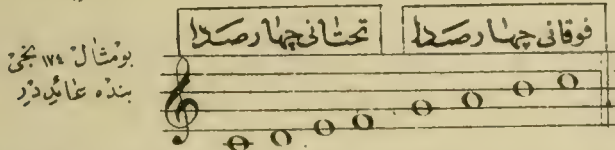 فوقانی چهار صدا
تحتانی چهار صدا
بومثال ١٧٤ نجی
بنده عائددر